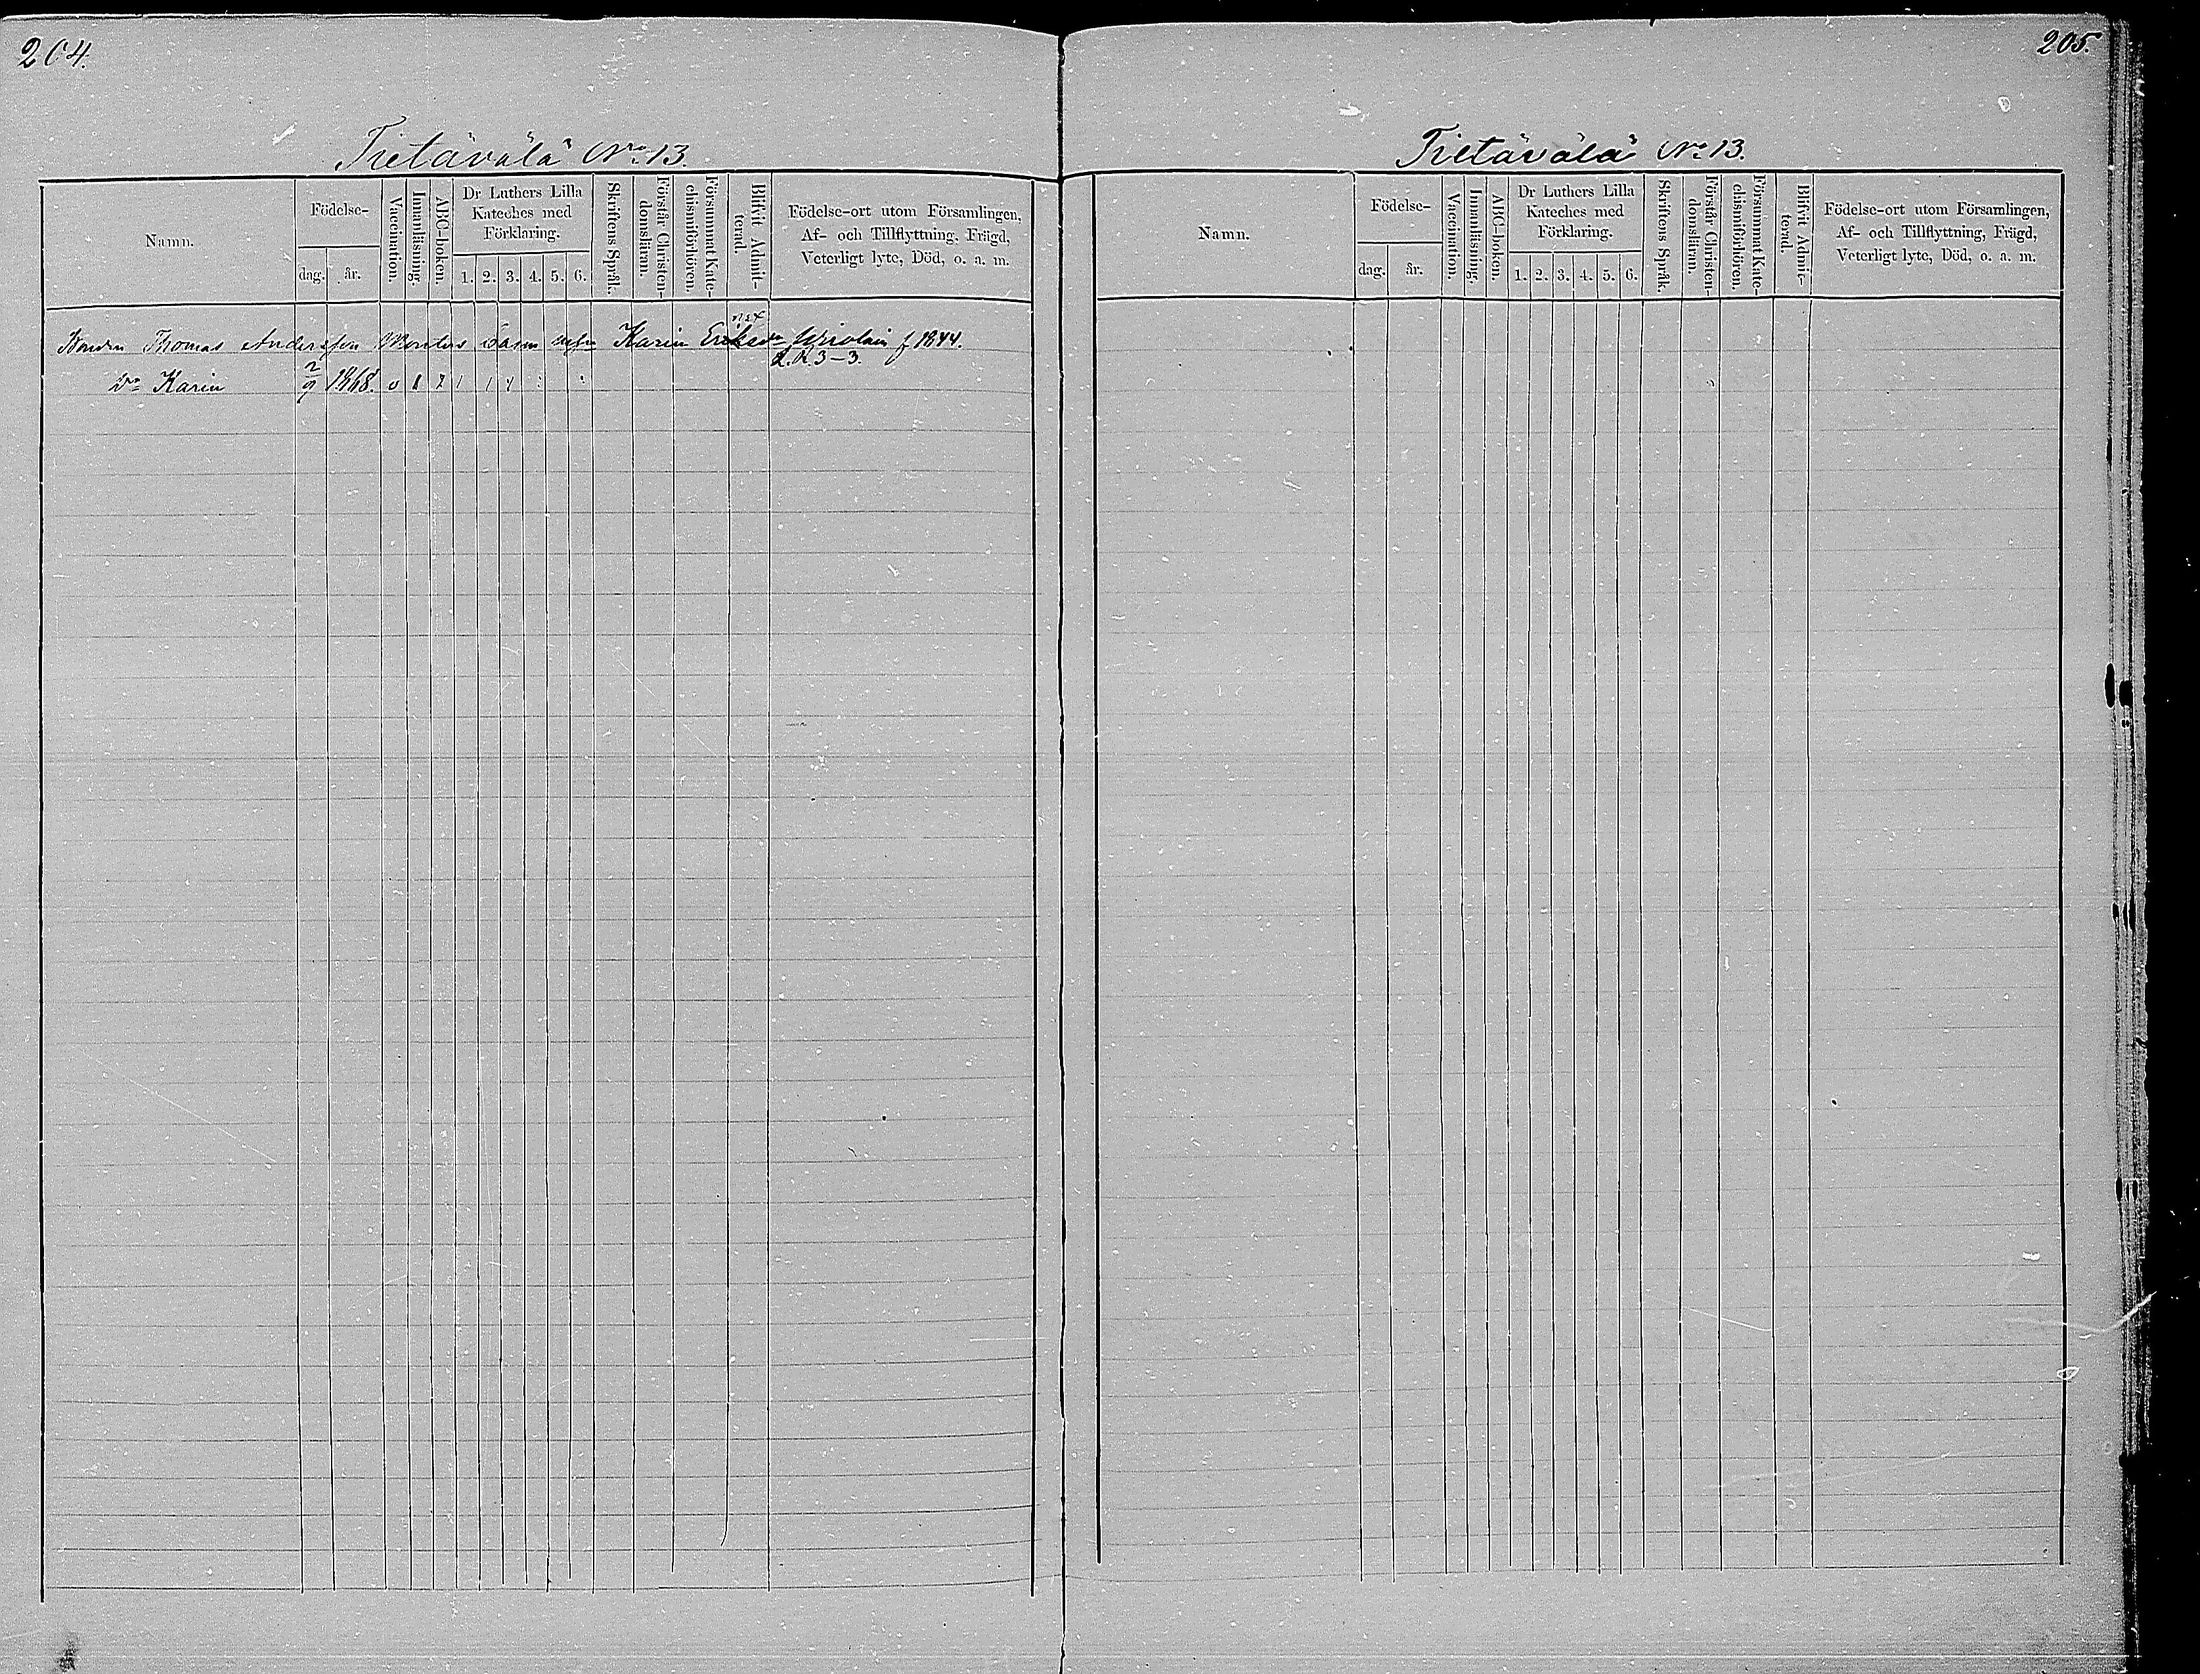 204.
Tietävälä No 13.
Namn.
Födelse-
dag.
år.
Vaccination.
Innanläsning.
ABC-boken.
Dr Luthers Lilla
Kateches med
Förklaring.
1. 2. 3. 4. 5. 6.
Skriftens Språk.
Förstår Christen-
domsläran.
Försummat Kate-
chismiförhören.
Blifvit Admit-
terad.
Födelse-ort utom Församlingen,
Af- och Tillflyttning, Frägd,
Veterligt lyte, Död, o. a. m.
Bonden Thomas Andersson barn Karin Eriksdr f 1844.
L.K. 3-3.
Dr Karin 2/9 1868.
205.
Tietävälä No 13.
Namn.
Födelse-
dag.
år.
Vaccination.
Innanläsning.
ABC-boken.
Dr Luthers Lilla
Kateches med
Förklaring.
1. 2. 3. 4. 5. 6.
Skriftens Språk.
Förstår Christen-
domsläran.
Försummat Kate-
chismiförhören.
Blifvit Admit-
terad.
Födelse-ort utom Församlingen,
Af- och Tillflyttning, Frägd,
Veterligt lyte, Död, o. a. m.